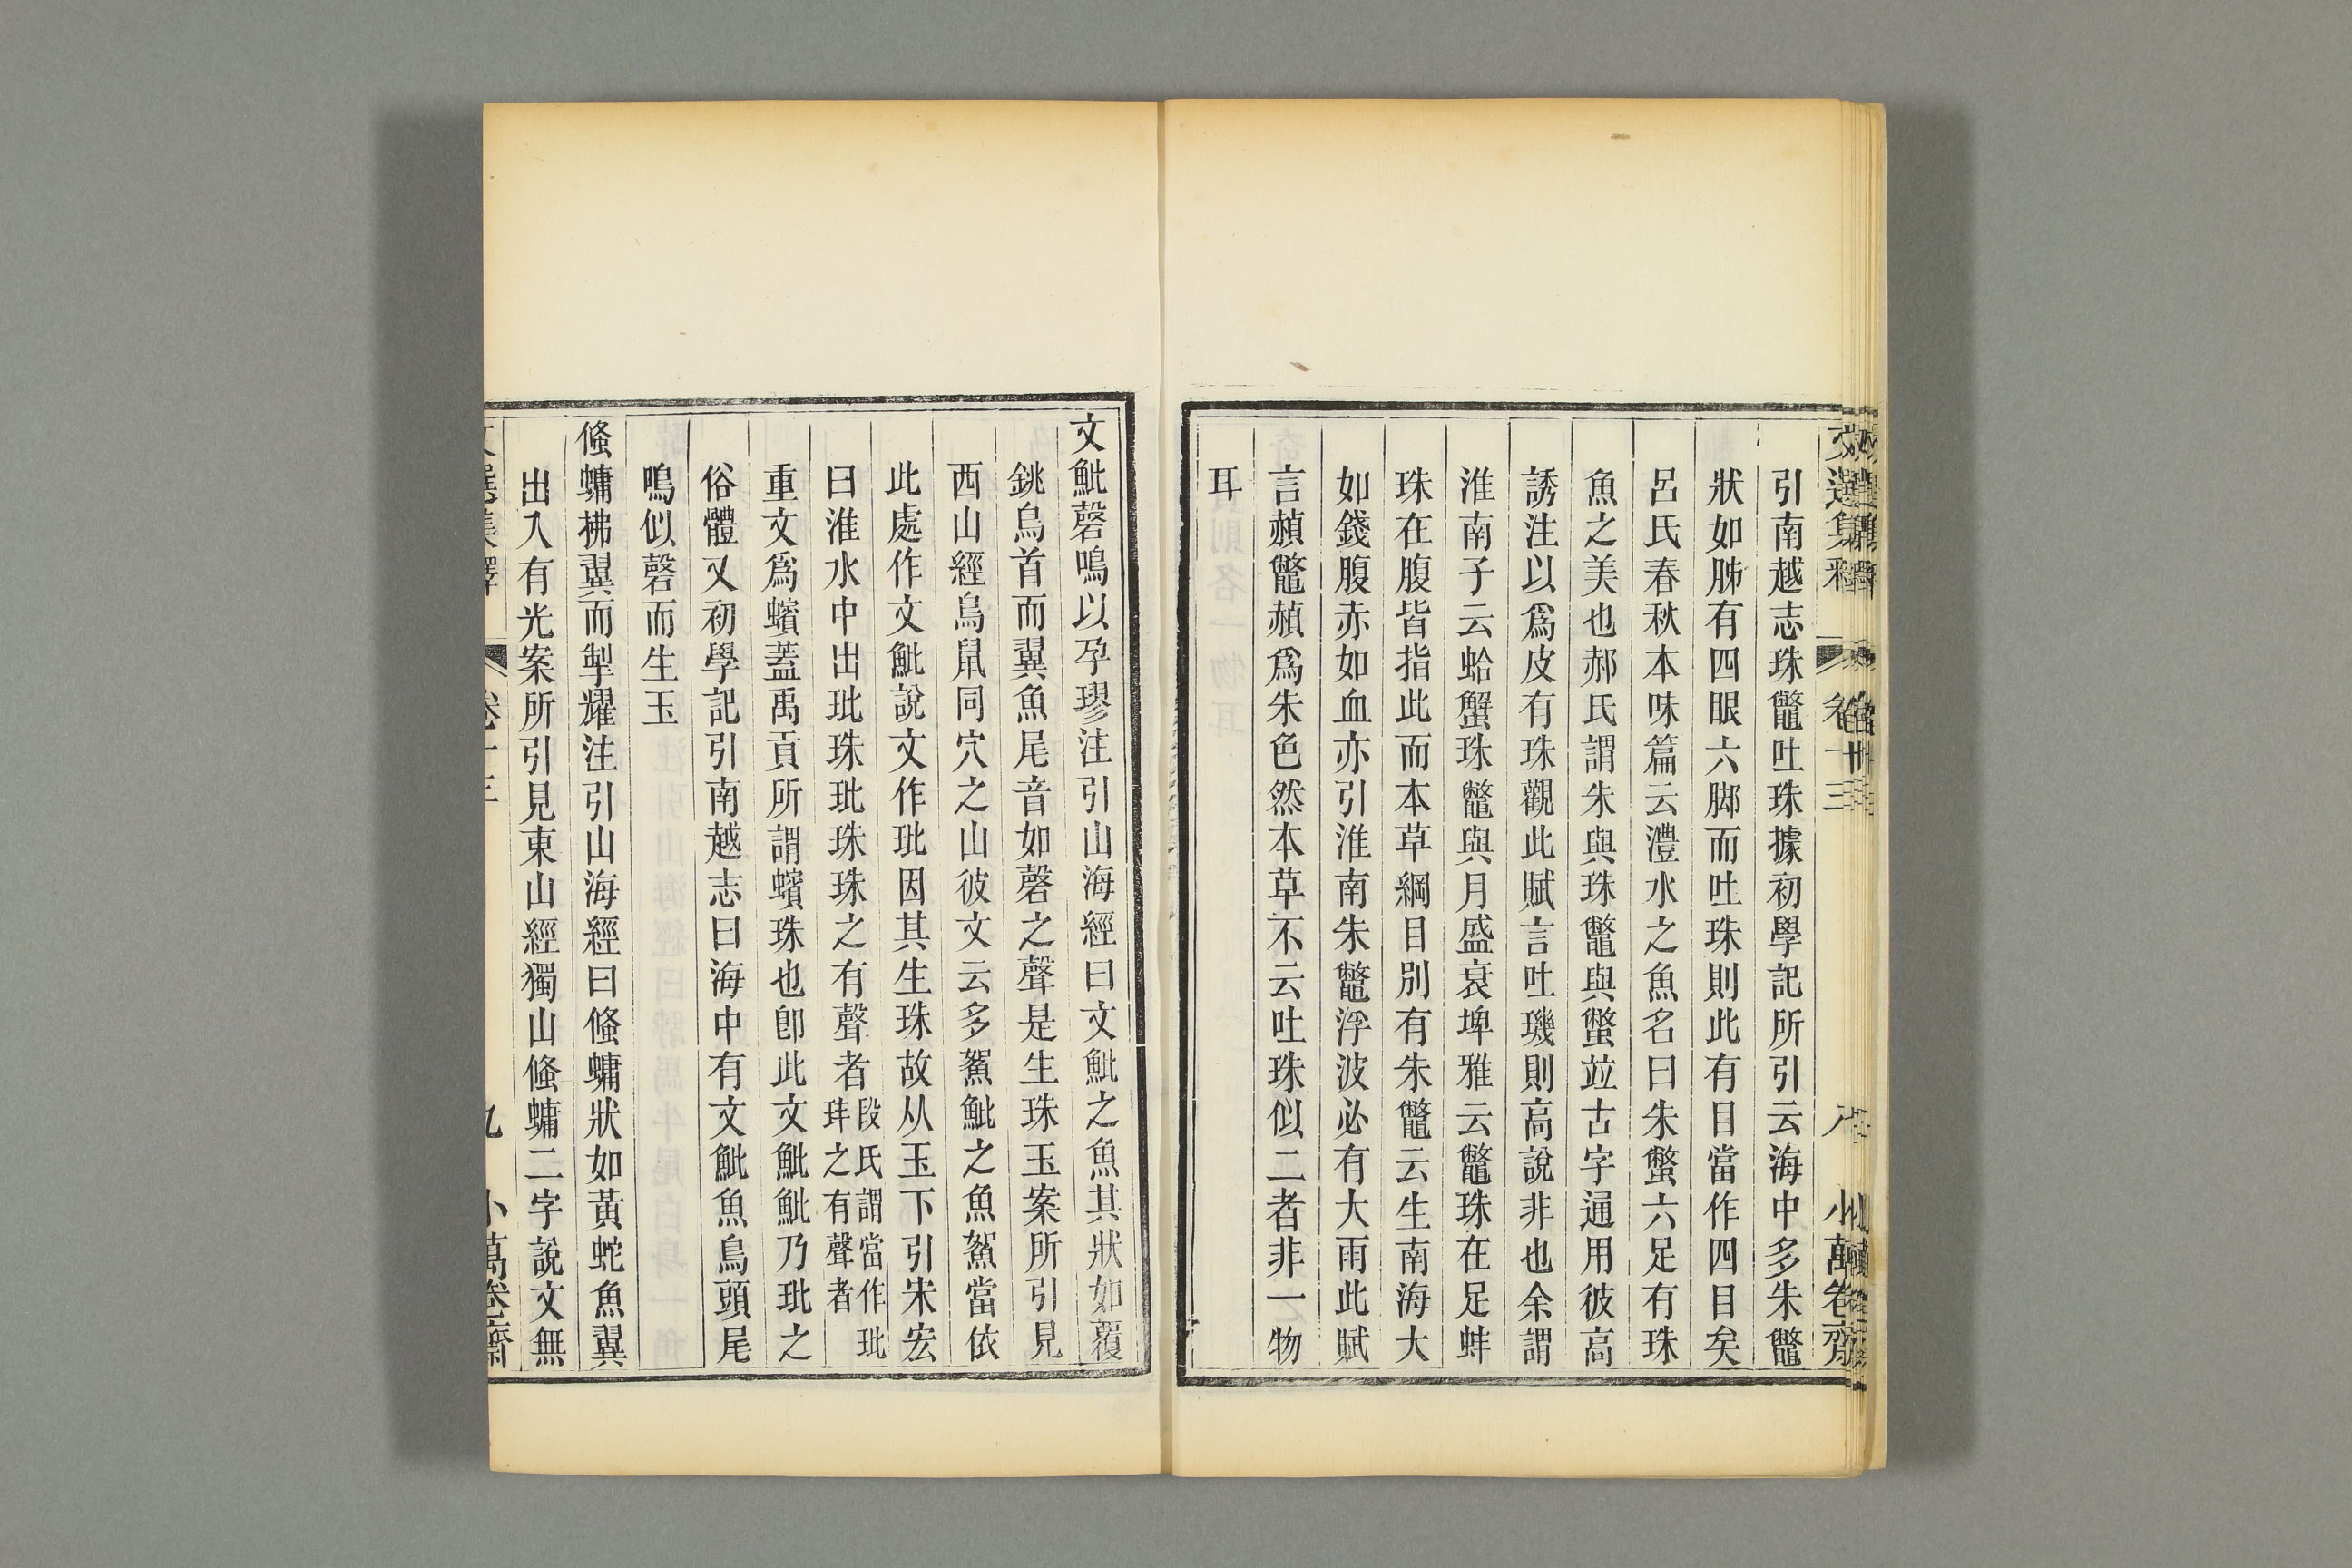 引南越志珠鼈吐珠據初學記所引云海中多朱鼈
狀如胏有四眼六脚而吐珠則此有目當作四目矣
呂氏春秋本味篇云澧水之魚名曰朱蟞六足有珠
魚之美也郝氏謂朱與珠鼈與蟞竝古字通用彼高
誘注以爲皮有珠觀此賦言吐璣則高說非也余謂
淮南子云蛤蟹珠鼈與月盛衰埤雅云鼈珠在足蚌
珠在腹皆指此而本草綱目別有朱鼈云生南海大
如錢腹赤如血亦引淮南朱鼈浮波必有大雨此賦
言赬鼈赬爲朱色然本草不云吐珠似二者非一物
耳
文魮磬鳴以孕璆注引山海經曰文魮之魚其狀如覆
銚鳥首而翼魚尾音如磬之聲是生珠玉案所引見
西山經鳥鼠同穴之山彼文云多䰻魮之魚䰻當依
此處作文魮說文作玭因其生珠故从玉下引宋宏
曰淮水中出玭珠玭珠珠之有聲者段氏謂當作玭珠之有聲者
重文爲蠙蓋禹貢所謂蠙珠也卽此文魮魮乃玭之
俗體又初學記引南越志曰海中有文魮魚鳥頭尾
鳴似磬而生玉
鯈䗤拂翼而掣耀注引山海經曰鯈䗤狀如黃蛇魚翼
出入有光案所引見東山經獨山鯈䗤二字說文無
文選集釋 卷十三 九 小萬卷齋